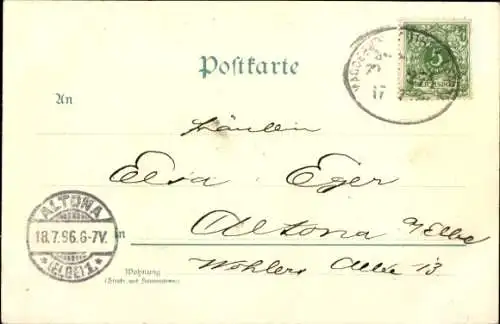 Postkarte
An
Fräulein
Elsa Eger
Altona a/Elbe
in
Wohlers Allee 13
Wohnung
(Straße und Hausnummer)
ALTONA
18.7.96.6-7V.
* (ELBE) 1. *
5
17